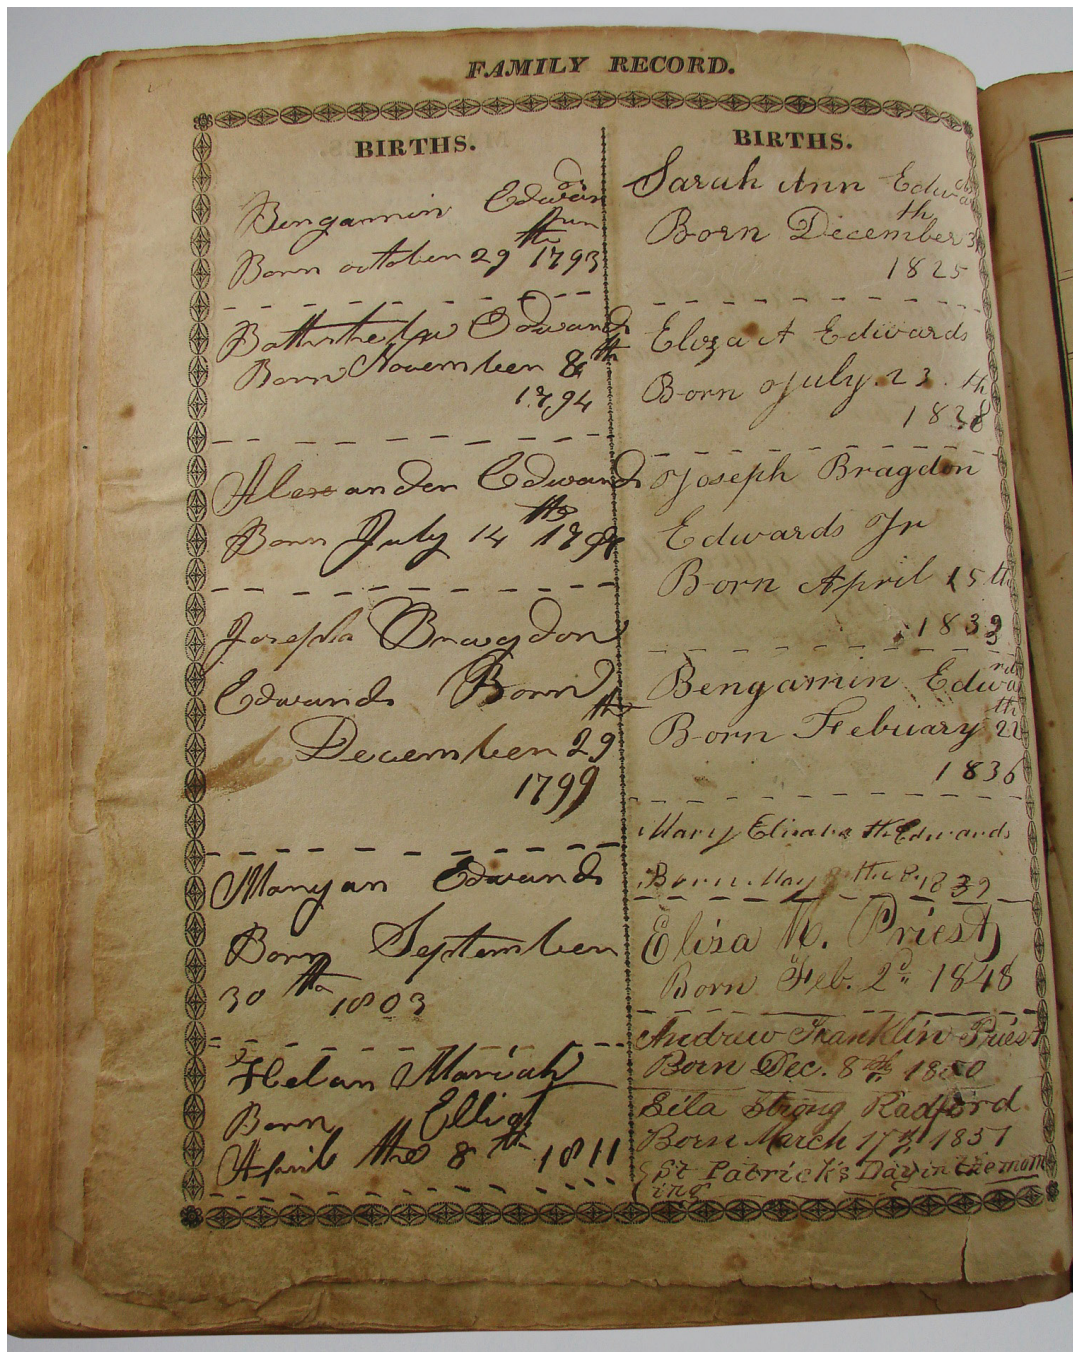 FAMILY RECORD.
BIRTHS.
Bengamin Edwards
Jun
Born october 29 th 1793
Edwards
Born November 8 th
1794
Alexander Edwards
Born July 14 th
Joseph Bragdon
Edwards Born
December 29 th
1799
Maryan Edwards
Born September
30 th 1803
Helan Mariah
Born Elliot
April the 8 th 1811
BIRTHS.
Sarah Ann Edwards
Born December th
1825
Eliza A Edwards
Born July 23 th
1838
Joseph Bragdon
Edwards Jr
Born April 15 th
183
Bengamin Edwards
Born Febuary 22 th
1836
Mary Elisabeth Edwards
Born May 8 th 1839
Eliza M. Priest
Born Feb. 2d 1848
Andrew Franklin Priest
Born Dec. 8th 1850
Lila Strong Radford
Born March 17th 1857
St Patrick's Day in the morn
ing